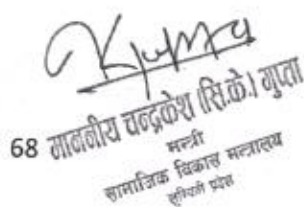 68 माननीय चन्द्रकेश (सि.के.) गुप्ता
मन्त्री
सामाजिक विकास मन्त्रालय
लुम्बिनी प्रदेश